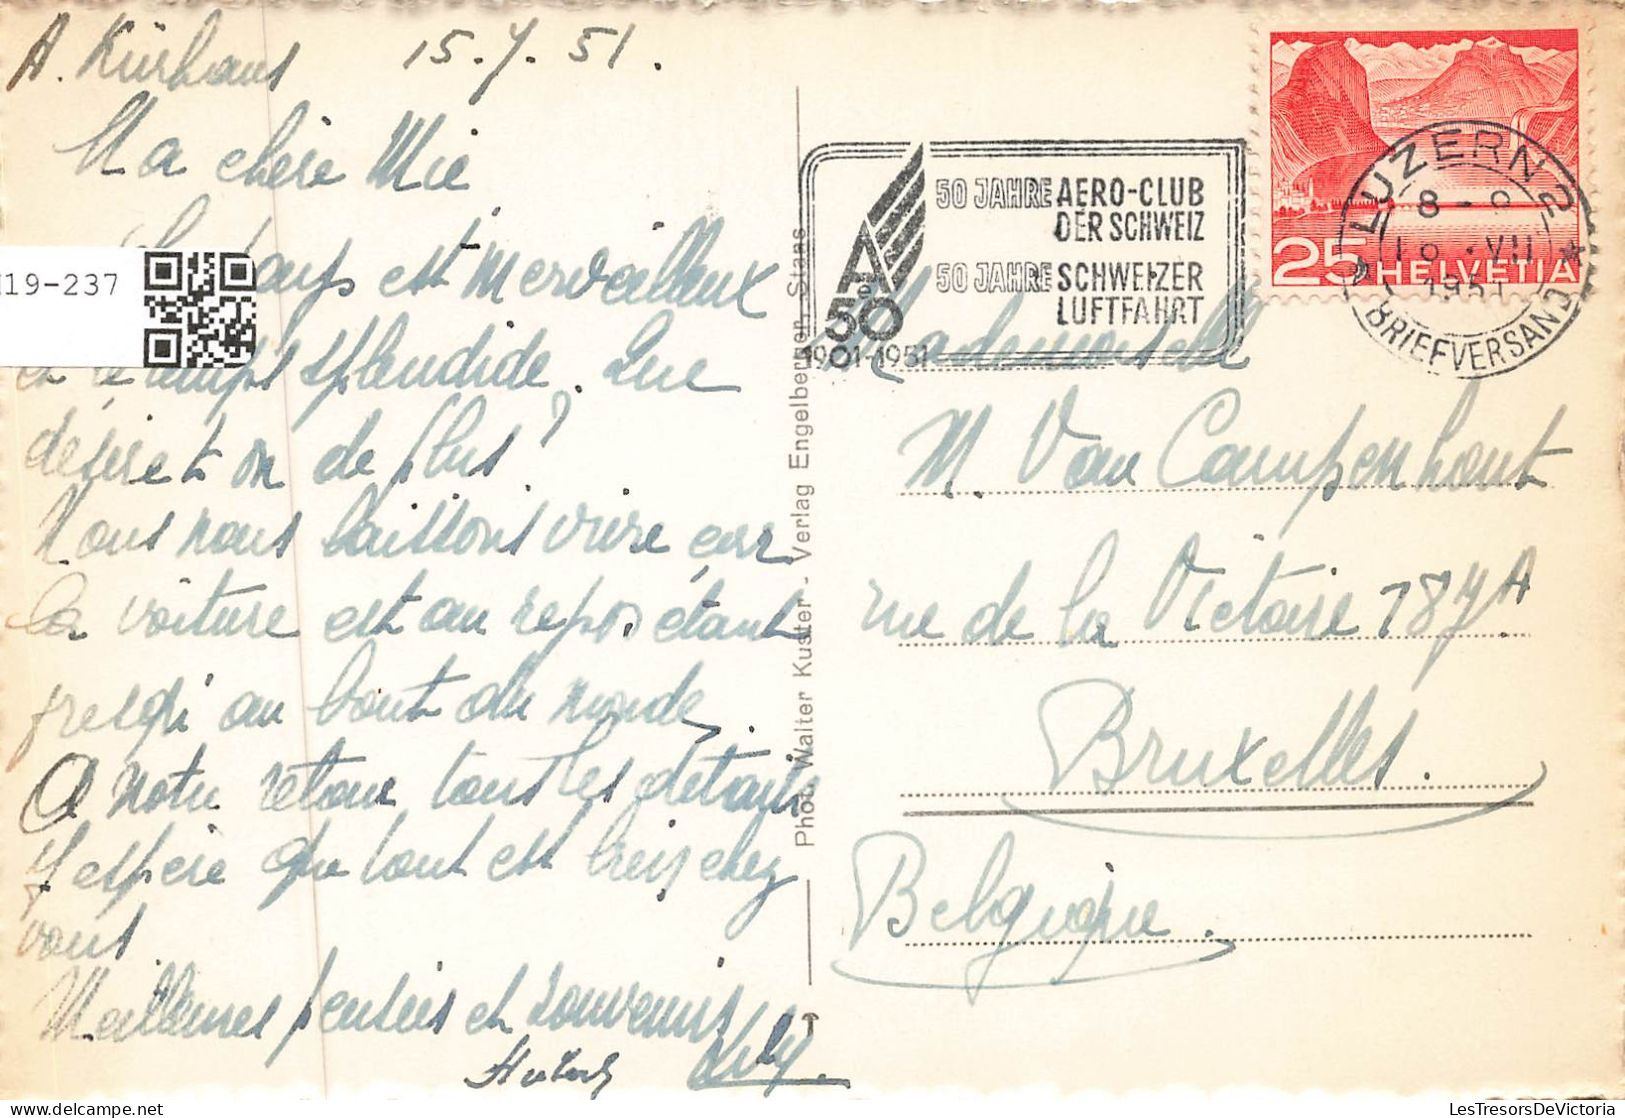 A. Kürhaus 15.7.51.
Ma chère Mie
est merveilleux
et le temps splendide. Que
désire t on de plus?
Nous nous laissons vivre car
la voiture est au repos étant
presqu au bout du monde.
A notre retour tous les détails
J espère que tout est bien chez
vous
Meilleures pensées et souvenirs
119-237
Photo Walter Kuster - Verlag Engelberger, Stans
50 JAHRE AERO-CLUB
DER SCHWEIZ
50 JAHRE SCHWEIZER
LUFTFAHRT
50
1901-1951
25 HELVETIA
LUZERN 2
8-9
16.VII
1951
BRIEFVERSAND
Mademoiselle
M. Van Campenhout
rue de la Victoire 187A
Bruxelles.
Belgique.
LesTresorsDeVictoria